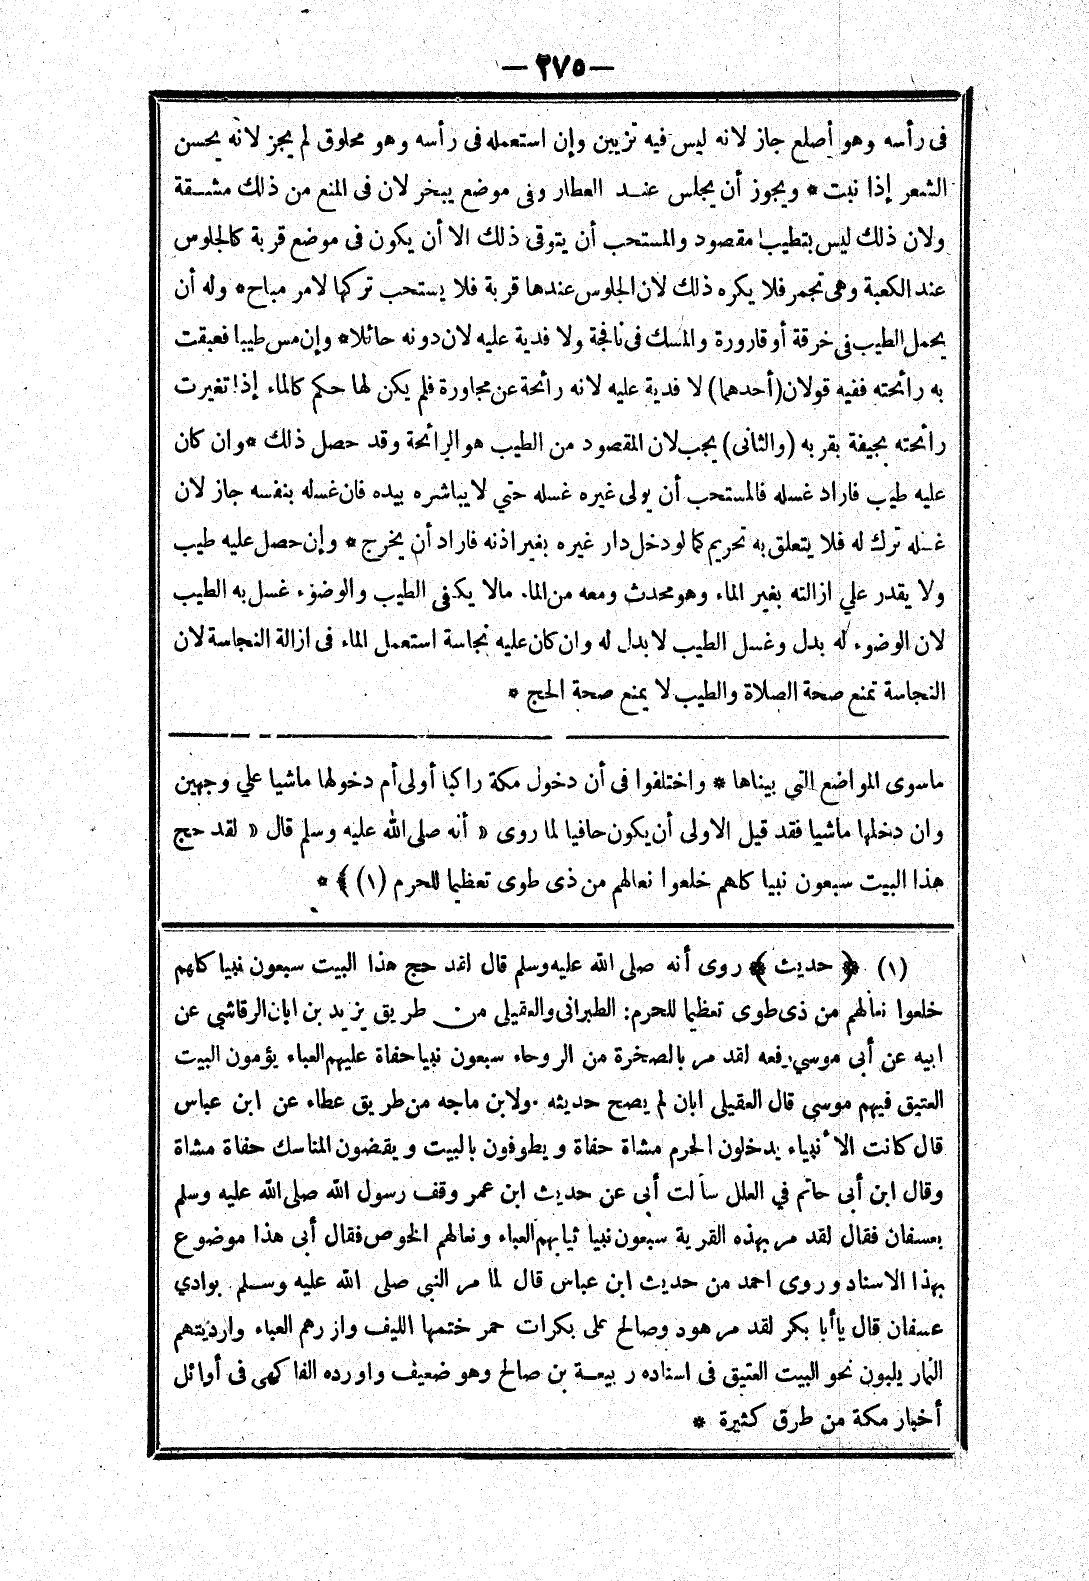 — ٢٧٥ —
فى رأسه وهو أصلع جاز لانه ليس فيه تزيين وإن استعمله فى رأسه وهو محلوق لم يجز لانه يحسن
الشعر إذا نبت * ويجوز أن يجلس عنـد العطار وفى موضع يبخر لان فى المنع من ذلك مشـقة
ولان ذلك ليس بتطيب مقصود والمستحب أن يتوقى ذلك الا أن يكون فى موضع قربة كالجلوس
عند الكعبة وهى تجمر فلا يكره ذلك لان الجلوس عندها قربة فلا يستحب تركها لامر مباح* وله أن
يحمل الطيب فى خرقة أو قارورة والمسك فى نافجة ولا فدية عليه لان دونه حائلا* وإن مس طيبا فعبقت
به رائحته ففيه قولان (أحدهما) لا فدية عليه لانه رائحة عن مجاورة فلم يكن لها حكم كالماء إذا تغيرت
رائحته بجيفة بقربه (والثانى) يجب لان المقصود من الطيب هو الرائحة وقد حصل ذلك *وان كان
عليه طيب فاراد غسله فالمستحب أن يولى غيره غسله حتي لا يباشره بيده فان غسله بنفسه جاز لان
غسله ترك له فلا يتعلق به تحريم كما لو دخل دار غيره بغير اذنه فاراد أن يخرج * وإن حصل عليه طيب
ولا يقدر علي ازالته بغير الماء وهو محدث ومعه من الماء مالا يكفى الطيب والوضوء غسل به الطيب
لان الوضوء له بدل وغسل الطيب لا بدل له وان كان عليه نجاسة استعمل الماء فى ازالة النجاسة لان
النجاسة تمنع صحة الصلاة والطيب لا يمنع صحة الحج *
ماسوى المواضع التي بيناها * واختلفوا فى أن دخول مكة راكبا أولى أم دخولها ماشيا علي وجهين
وان دخلها ماشيا فقد قيل الاولى أن يكون حافيا لما روى « أنه صلى الله عليه وسلم قال « لقد حج
هذا البيت سبعون نبيا كلهم خلعوا نعالهم من ذى طوى تعظيما للحرم (١) ﴾ *
(١) ﴿ حديث ﴾ روى أنه صلى الله عليه وسلم قال لقد حج هذا البيت سبعون نبيا كلهم
خلعوا نعالهم من ذى طوى تعظيما للحرم: الطبرانى والعقيلى من طريق يزيد بن ابان الرقاشى عن
ابيه عن أبى موسي رفعه لقد مر بالصخرة من الروحاء سبعون نبيا حفاة عليهم العباء يؤمون البيت
العتيق فيهم موسى قال العقيلى ابان لم يصح حديثه ٠ولابن ماجه من طريق عطاء عن ابن عباس
قال كانت الأنبياء يدخلون الحرم مشاة حفاة ويطوفون بالبيت ويقضون المناسك حفاة مشاة
وقال ابن أبى حاتم في العلل سألت أبى عن حديث ابن عمر وقف رسول الله صلى الله عليه وسلم
بعسفان فقال لقد مر بهذه القرية سبعون نبيا ثيابهم العباء ونعالهم الخوص فقال أبى هذا موضوع
بهذا الاسناد وروى احمد من حديث ابن عباس قال لما مر النبي صلى الله عليه وسـلم بوادي
عسفان قال يا أبا بكر لقد مر هود وصالح على بكرات حمر ختمها الليف وازرهم العباء وارديتهم
النمار يلبون نحو البيت العتيق فى اسناده ربيعـة بن صالح وهو ضعيف واورده الفاكهى فى أوائل
أخبار مكة من طرق كثيرة *